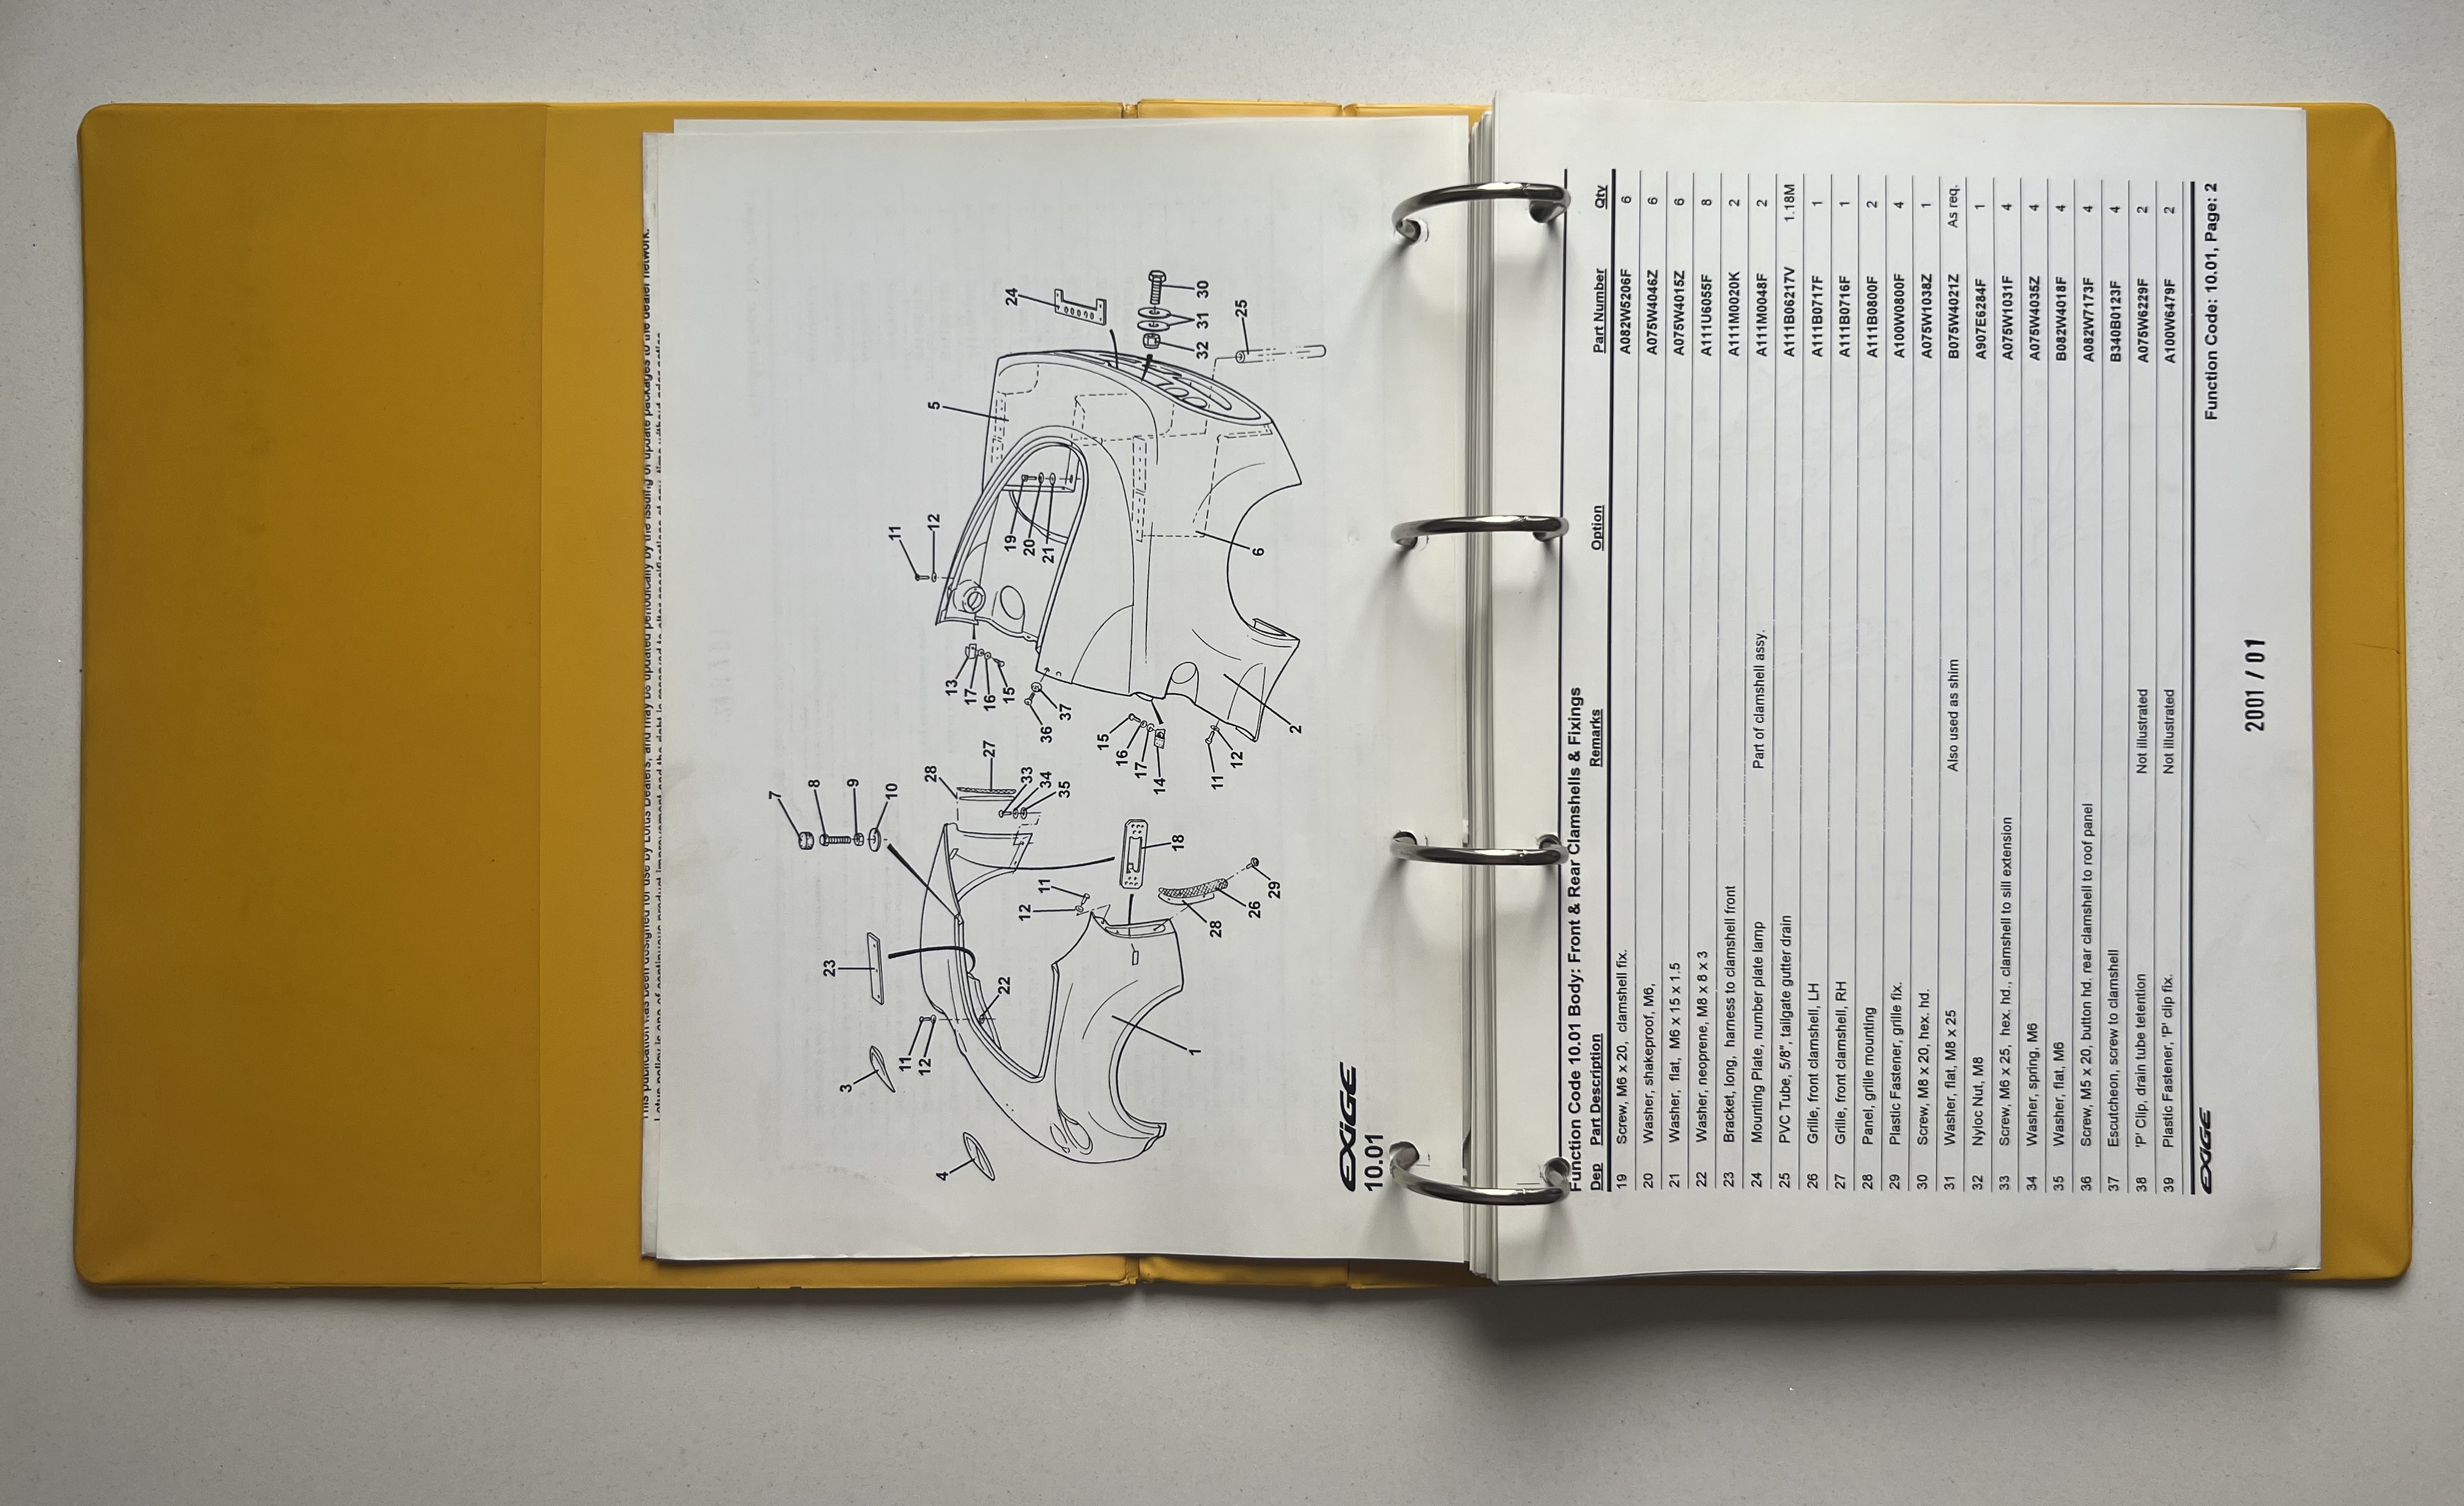 This publication has been designed for use by Lotus Dealers, and may be updated periodically by the issuing of update packages to the dealer network.
7
8
23
3
9
10
11
11
12
28
12
5
4
13
17
16
27
22
15
19
24
12
33
20
11
34
36
21
35
37
15
16
17
14
18
1
32 31 30
28
11
12
25
26
6
29
2
EXIGE
10.01
Function Code 10.01 Body: Front & Rear Clamshells & Fixings
Dep Part Description Remarks Option Part Number Qty
19 Screw, M6 x 20, clamshell fix. A082W5206F 6
20 Washer, shakeproof, M6, A075W4046Z 6
21 Washer, flat, M6 x 15 x 1.5 A075W4015Z 6
22 Washer, neoprene, M8 x 8 x 3 A111U6055F 8
23 Bracket, long, harness to clamshell front A111M0020K 2
24 Mounting Plate, number plate lamp Part of clamshell assy. A111M0048F 2
25 PVC Tube, 5/8", tailgate gutter drain A111B06217V 1.18M
26 Grille, front clamshell, LH A111B0717F 1
27 Grille, front clamshell, RH A111B0716F 1
28 Panel, grille mounting A111B0800F 2
29 Plastic Fastener, grille fix. A100W0800F 4
30 Screw, M8 x 20, hex. hd. A075W1038Z 1
31 Washer, flat, M8 x 25 Also used as shim B075W4021Z As req.
32 Nyloc Nut, M8 A907E6284F 1
33 Screw, M6 x 25, hex. hd., clamshell to sill extension A075W1031F 4
34 Washer, spring, M6 A075W4035Z 4
35 Washer, flat, M6 B082W4018F 4
36 Screw, M5 x 20, button hd. rear clamshell to roof panel A082W7173F 4
37 Escutcheon, screw to clamshell B340B0123F 4
38 'P' Clip, drain tube tetention Not illustrated A075W6229F 2
39 Plastic Fastener, 'P' clip fix. Not illustrated A100W6479F 2
EXIGE Function Code: 10.01, Page: 2
2001 / 01